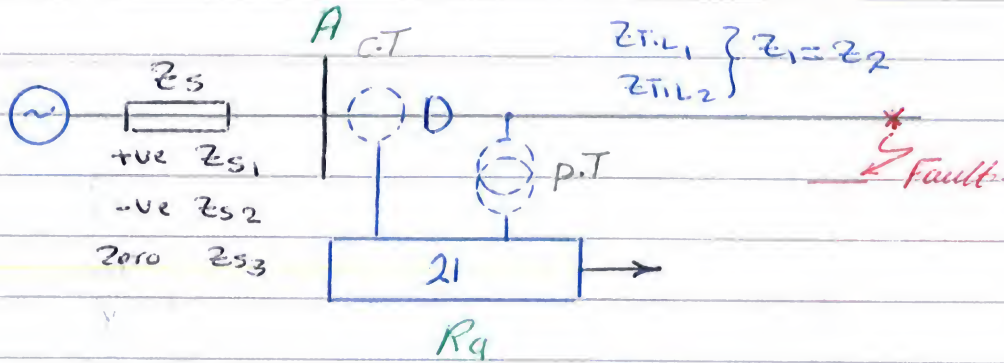 A
C.T
ZT.L1 } Z1 = Z2
ZT.L2
Zs
+ve Zs1
-ve Zs2
Zero Zs3
P.T
Fault
21
Ra